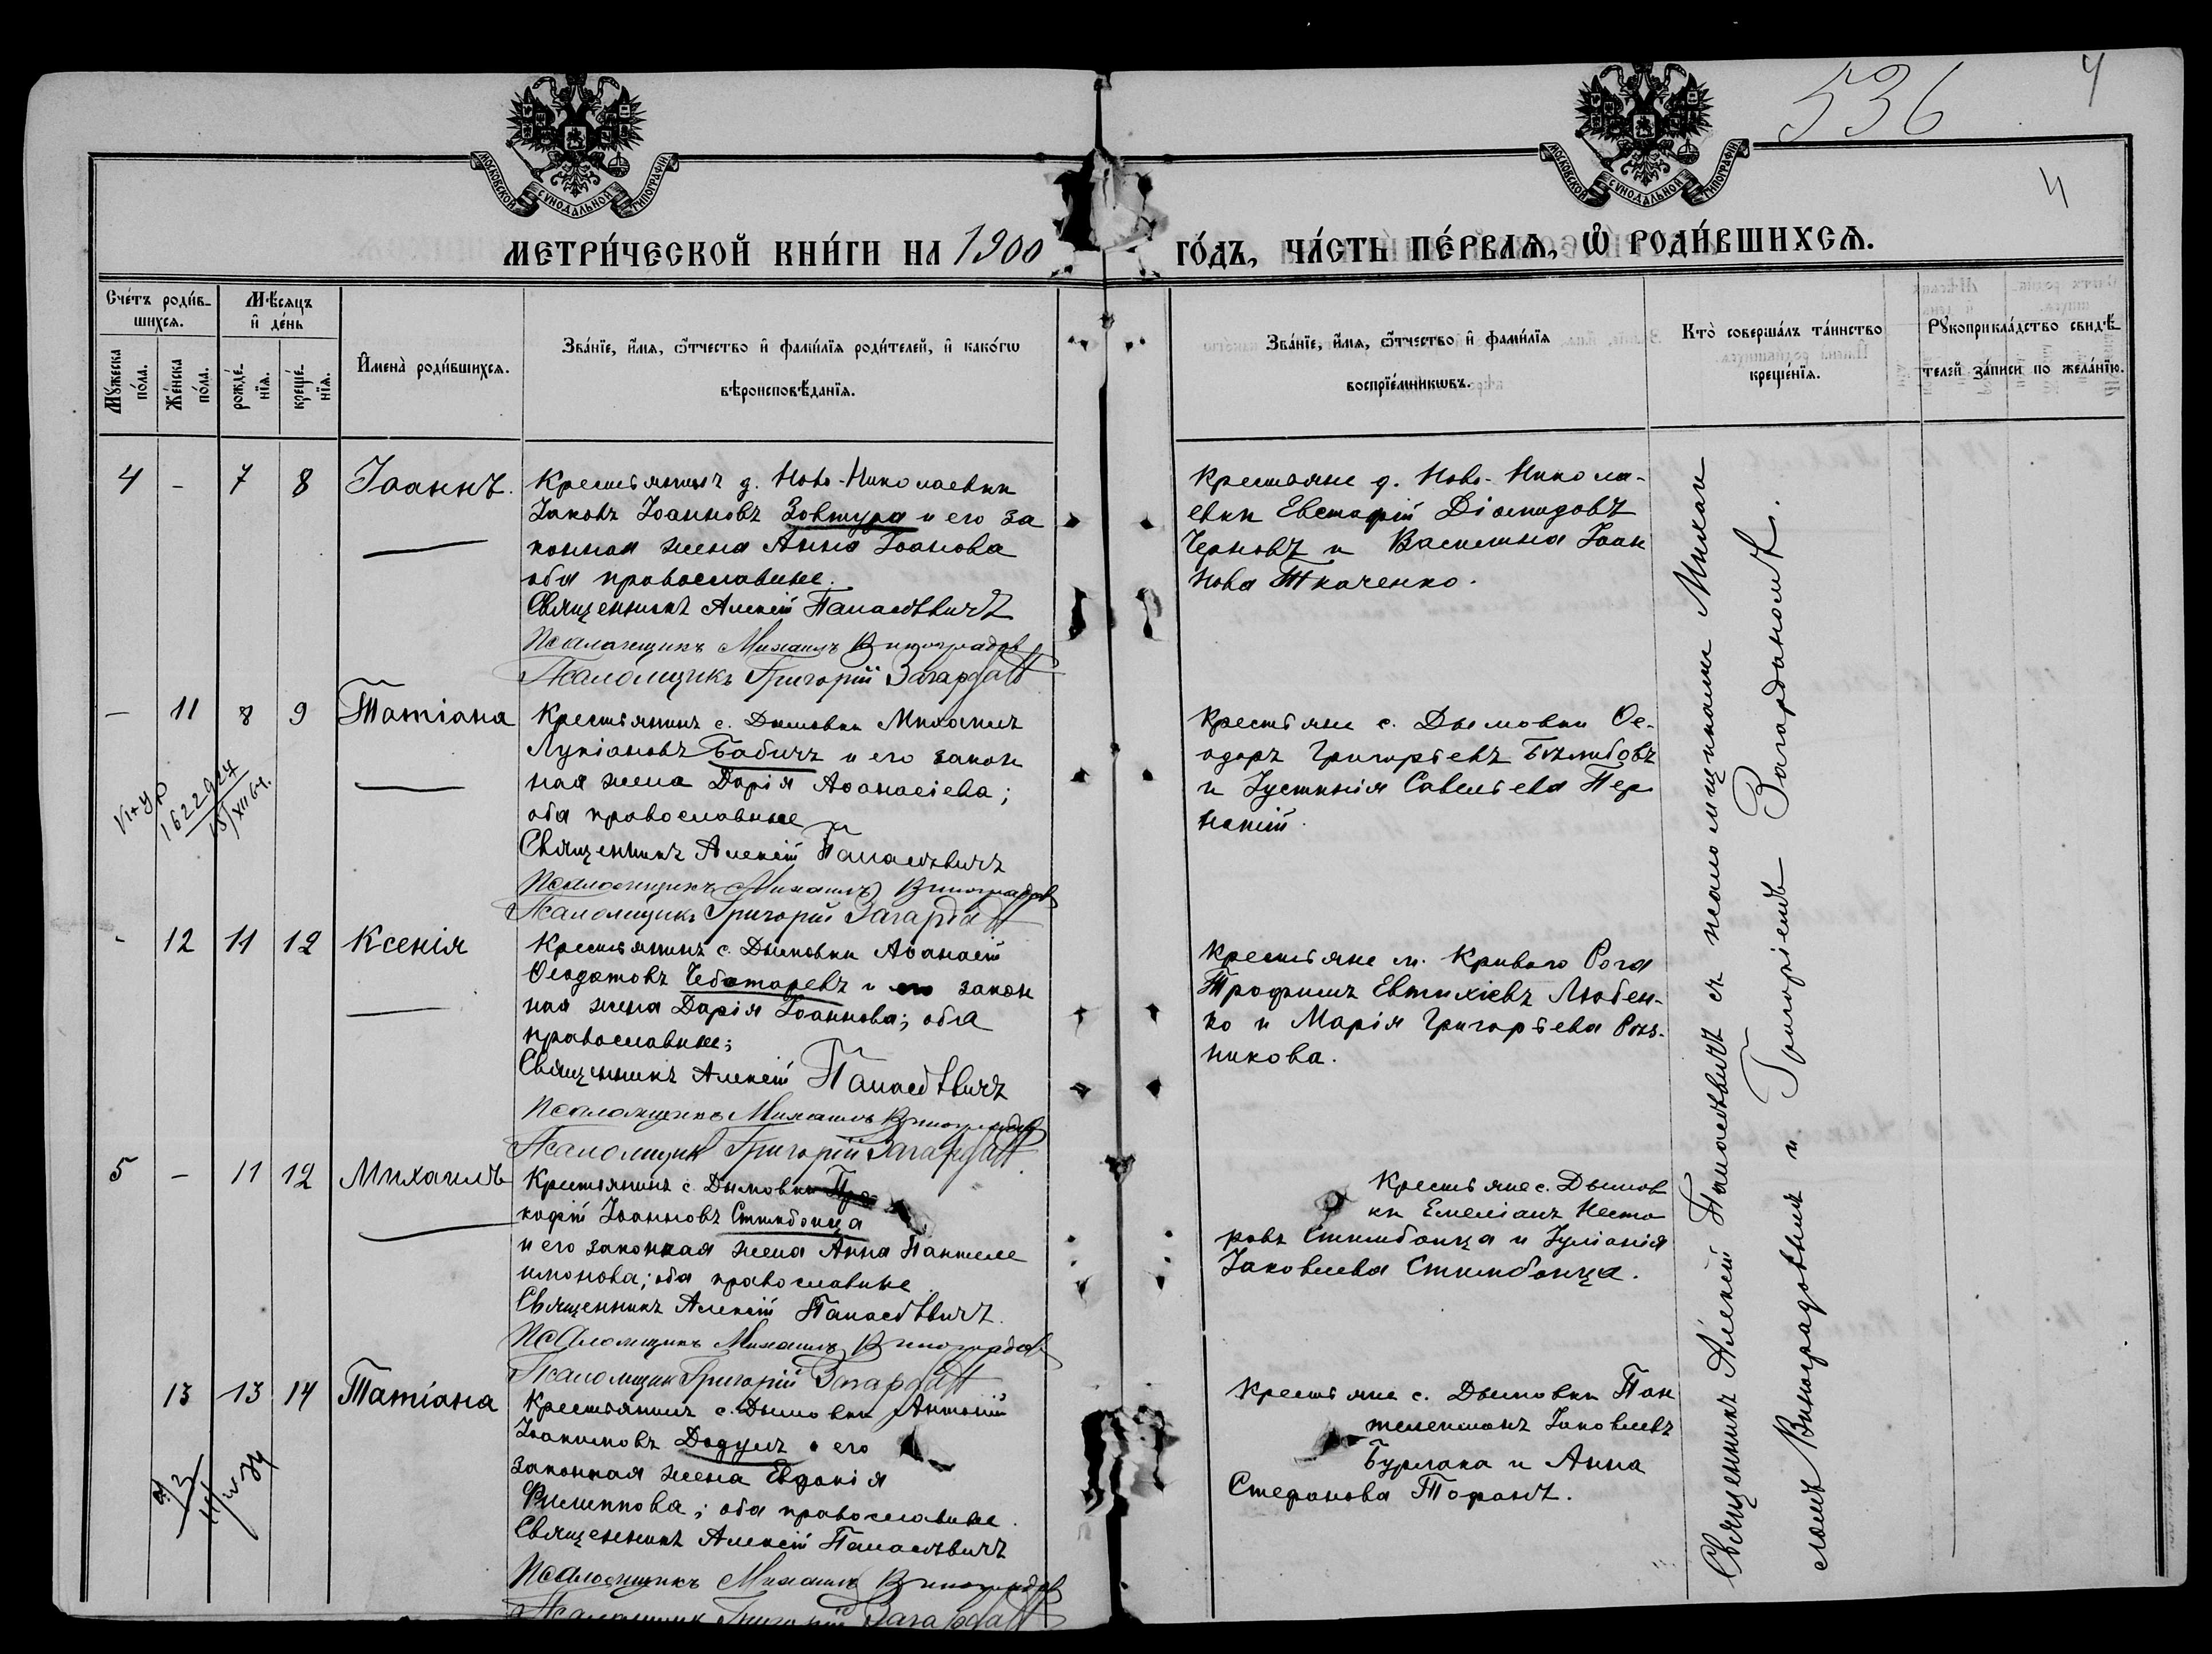 536
4
4
МОСКОВСКОЙ СѴНОДАЛЬНОЙ ТИПОГРАФІИ
МОСКОВСКОЙ СѴНОДАЛЬНОЙ ТИПОГРАФІИ
МЕТРИ́ЧЕСКОЙ КНИ́ГИ НА 1900 ГО́ДЪ, ЧА́СТЬ ПЕ́РВАѦ, Ѡ҆ РОДИ́ВШИХСѦ.
Сче́тъ роди́в-
шихсѧ.
Мѣ́сѧцъ
и҆ де́нь
Мꙋ́жеска
по́ла.
Же́нска
по́ла.
рожде́-
нїѧ.
креще́-
нїѧ.
И҆мена̀ роди́вшихсѧ.
Зва́нїе, и҆́мѧ, ѻ҆́тчество и҆ фамі́лїѧ роди́телей, и҆ како́гѡ
вѣроисповѣ́данїѧ.
Зва́нїе, и҆́мѧ, ѻ҆́тчество и҆ фамі́лїѧ
воспрїе́мникѡвъ.
Кто̀ соверша́лъ та́инство
креще́нїѧ.
Рꙋкоприкла́дство свидѣ́-
телей за́писи по жела́нїю.
4 - 7 8 Іоаннъ.
Крестьянинъ д. Ново-Николаевки
Іаковъ Іоанновъ Зовтура и его за
конная жена Анна Іоанова
оба православные.
Священникъ Алексій Панасѣвичъ
Псаломщикъ Михаилъ Виноградов
Псаломщикъ Григорій
Крестьяне д. Ново-Никола-
евки Евстафій Діомидовъ
Черновъ и Василина Іоан
нова Ткаченко.
— 11 8 9 Татіана
Крестьянинъ с. Дымовки Михаилъ
Лукіановъ Бабичъ и его закон
ная жена Дарія Аѳанасіева;
оба православные
Священникъ Алексій Панасѣвичъ
Псаломщикъ Михаилъ Виноградов
Псаломщикъ Григорій
Крестьяне с. Дымовки Ѳе-
одоръ Григорьевъ
и Іустинія Савельева Пер
1622924
- 12 11 12 Ксенія
Крестьянинъ с. Дымовки Аѳанасій
Ѳеодотовъ Чеботаревъ и его закон
ная жена Дарія Іоаннова; оба
православные;
Священникъ Алексій Панасѣвичъ
Псаломщикъ Михаилъ Виноградов
Псаломщик Григорій
Крестьяне м. Кривого Рога
Трофимъ Евтихіевъ Любен-
ко и Марія Григорьева
никова.
5 - 11 12 Михаилъ
Крестьянинъ с. Дымовки Про
кофій Іоанновъ Стимбонца
и его законная жена Анна Пантеле
имонова; оба православные
Священникъ Алексій Панасѣвичъ.
Псаломщикъ Михаилъ Виноградов
Псаломщик Григорій
Крестьяне с. Дымов
ки Емеліанъ Несто
ровъ Стимбонца и Іуліанія
Іаковлева Стимбонца.
13 13 14 Татіана
Крестьянинъ с. Дымовки Антоній
Іоакимовъ Додулъ его
законная жена Евдокія
Филиппова; оба православные.
Священникъ Алексій Панасѣвичъ
Псаломщикъ Михаилъ Виноградов
Псаломщик Григорій
Крестьяне с. Дымовки Пан
телеимонъ Іаковлевъ
Бурлака и Анна
Стефанова
Священникъ Алексій Панасѣвичъ съ псаломщиками Михаи
ломъ Виноградовымъ и Григоріемъ